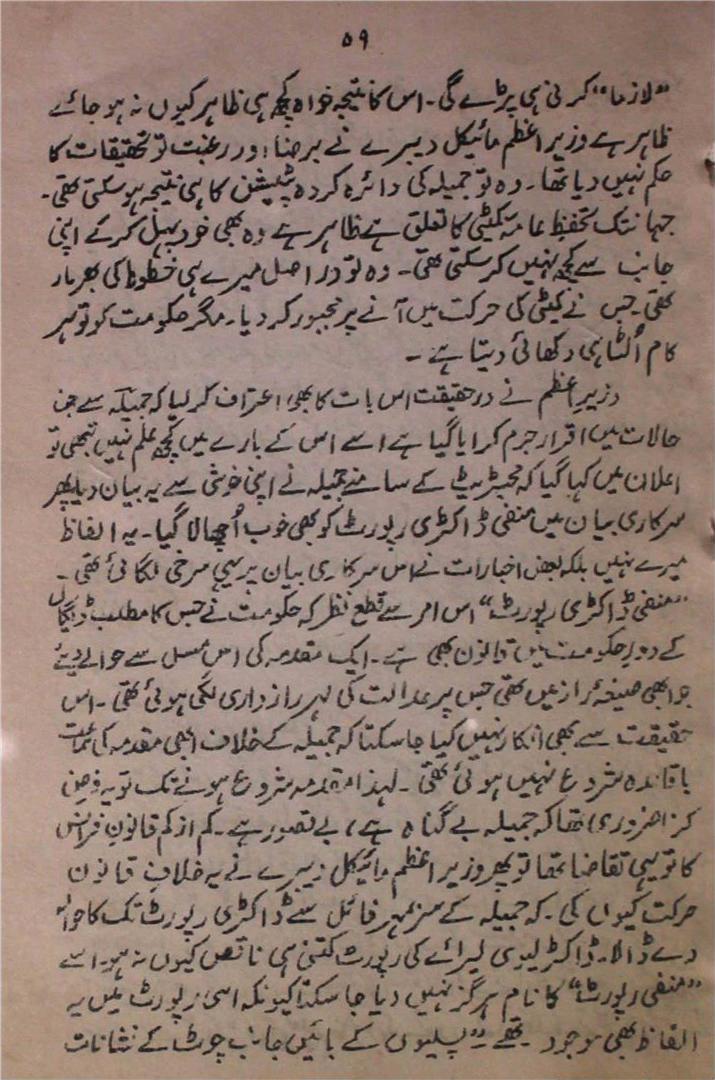 ۵۹
”لازما“ کرنی ہی پڑے گی۔ اس کا نتیجہ خواہ کچھ ہی ظاہر کیوں نہ ہو جائے
ظاہر ہے وزیر اعظم مائیکل دیبرے نے برضا اور رغبت تو تحقیقات کا
حکم نہیں دیا تھا۔ وہ تو جمیلہ کی دائرہ کردہ پٹیشن کا ہی نتیجہ ہو سکتی تھی۔
جہانتک تحفیظ عامہ کمیٹی کا تعلق ہے ظاہر ہے وہ بھی خود پہل کرکے اپنی
جانب سے کچھ نہیں کر سکتی تھی۔ وہ تو در اصل میرے ہی خطوط کی بھرمار
تھی جس نے کمیٹی کی حرکت میں آنے پر مجبور کر دیا۔ مگر حکومت کو تو ہر
کام اُلٹا ہی دکھائی دیتا ہے ۔
وزیر اعظم نے در حقیقت اس بات کا بھی اعتراف کر لیا کہ جمیلہ سے جن
حالات میں اقرار جرم کرایا گیا ہے اسے اس کے بارے میں کچھ علم نہیں تبھی تو
اعلان میں کہا گیا کہ مجسٹریٹ کے سامنے جمیلہ نے اپنی خوشی سے یہ بیان دیا پھر
سرکاری بیان میں منفی ڈاکٹری رپورٹ کو بھی خوب اُچھالا گیا۔ یہ الفاظ
میرے نہیں بلکہ بعض اخبارات نے اس سرکاری بیان پر یہی سرخی لگائی تھی۔
”منفی ڈاکٹری رپورٹ“ اس امر سے قطع نظر کہ حکومت نے جس کا مطلب ڈیگال
کے دورِ حکومت میں قانون بھی ہے۔ ایک مقدمہ کی اس مسل سے حوالے دیئے
جو ابھی صیغہ راز میں تھی جس پر عدالت کی لہر رازداری لگی ہوئی تھی۔ اس
حقیقت سے بھی انکار نہیں کیا جا سکتا کہ جمیلہ کے خلاف ابھی مقدمہ کی سماعت
باقاعدہ شروع نہیں ہوئی تھی۔ لہذا مقدمہ شروع ہونے تک تو یہ فرض
کرنا ضروری تھا کہ جمیلہ بے گناہ ہے، بے قصور ہے۔ کم از کم قانونِ فرانس
کا تو یہی تقاضا تھا تو پھر وزیر اعظم مائیکل زیبرے نے یہ خلافِ قانون
حرکت کیوں کی۔ کہ جمیلہ کے سربمہر فائل سے ڈاکٹری رپورٹ تک کا حوالہ
دے ڈالا۔ ڈاکٹر لیوی لیرائے کی رپورٹ کتنی ہی ناقص کیوں نہ ہو۔ اسے
”منفی رپورٹ“ کا نام ہرگز نہیں دیا جا سکتا کیونکہ اسی رپورٹ میں یہ
الفاظ بھی موجود تھے ”پسلیوں کے بائیں جانب چوٹ کے نشانات